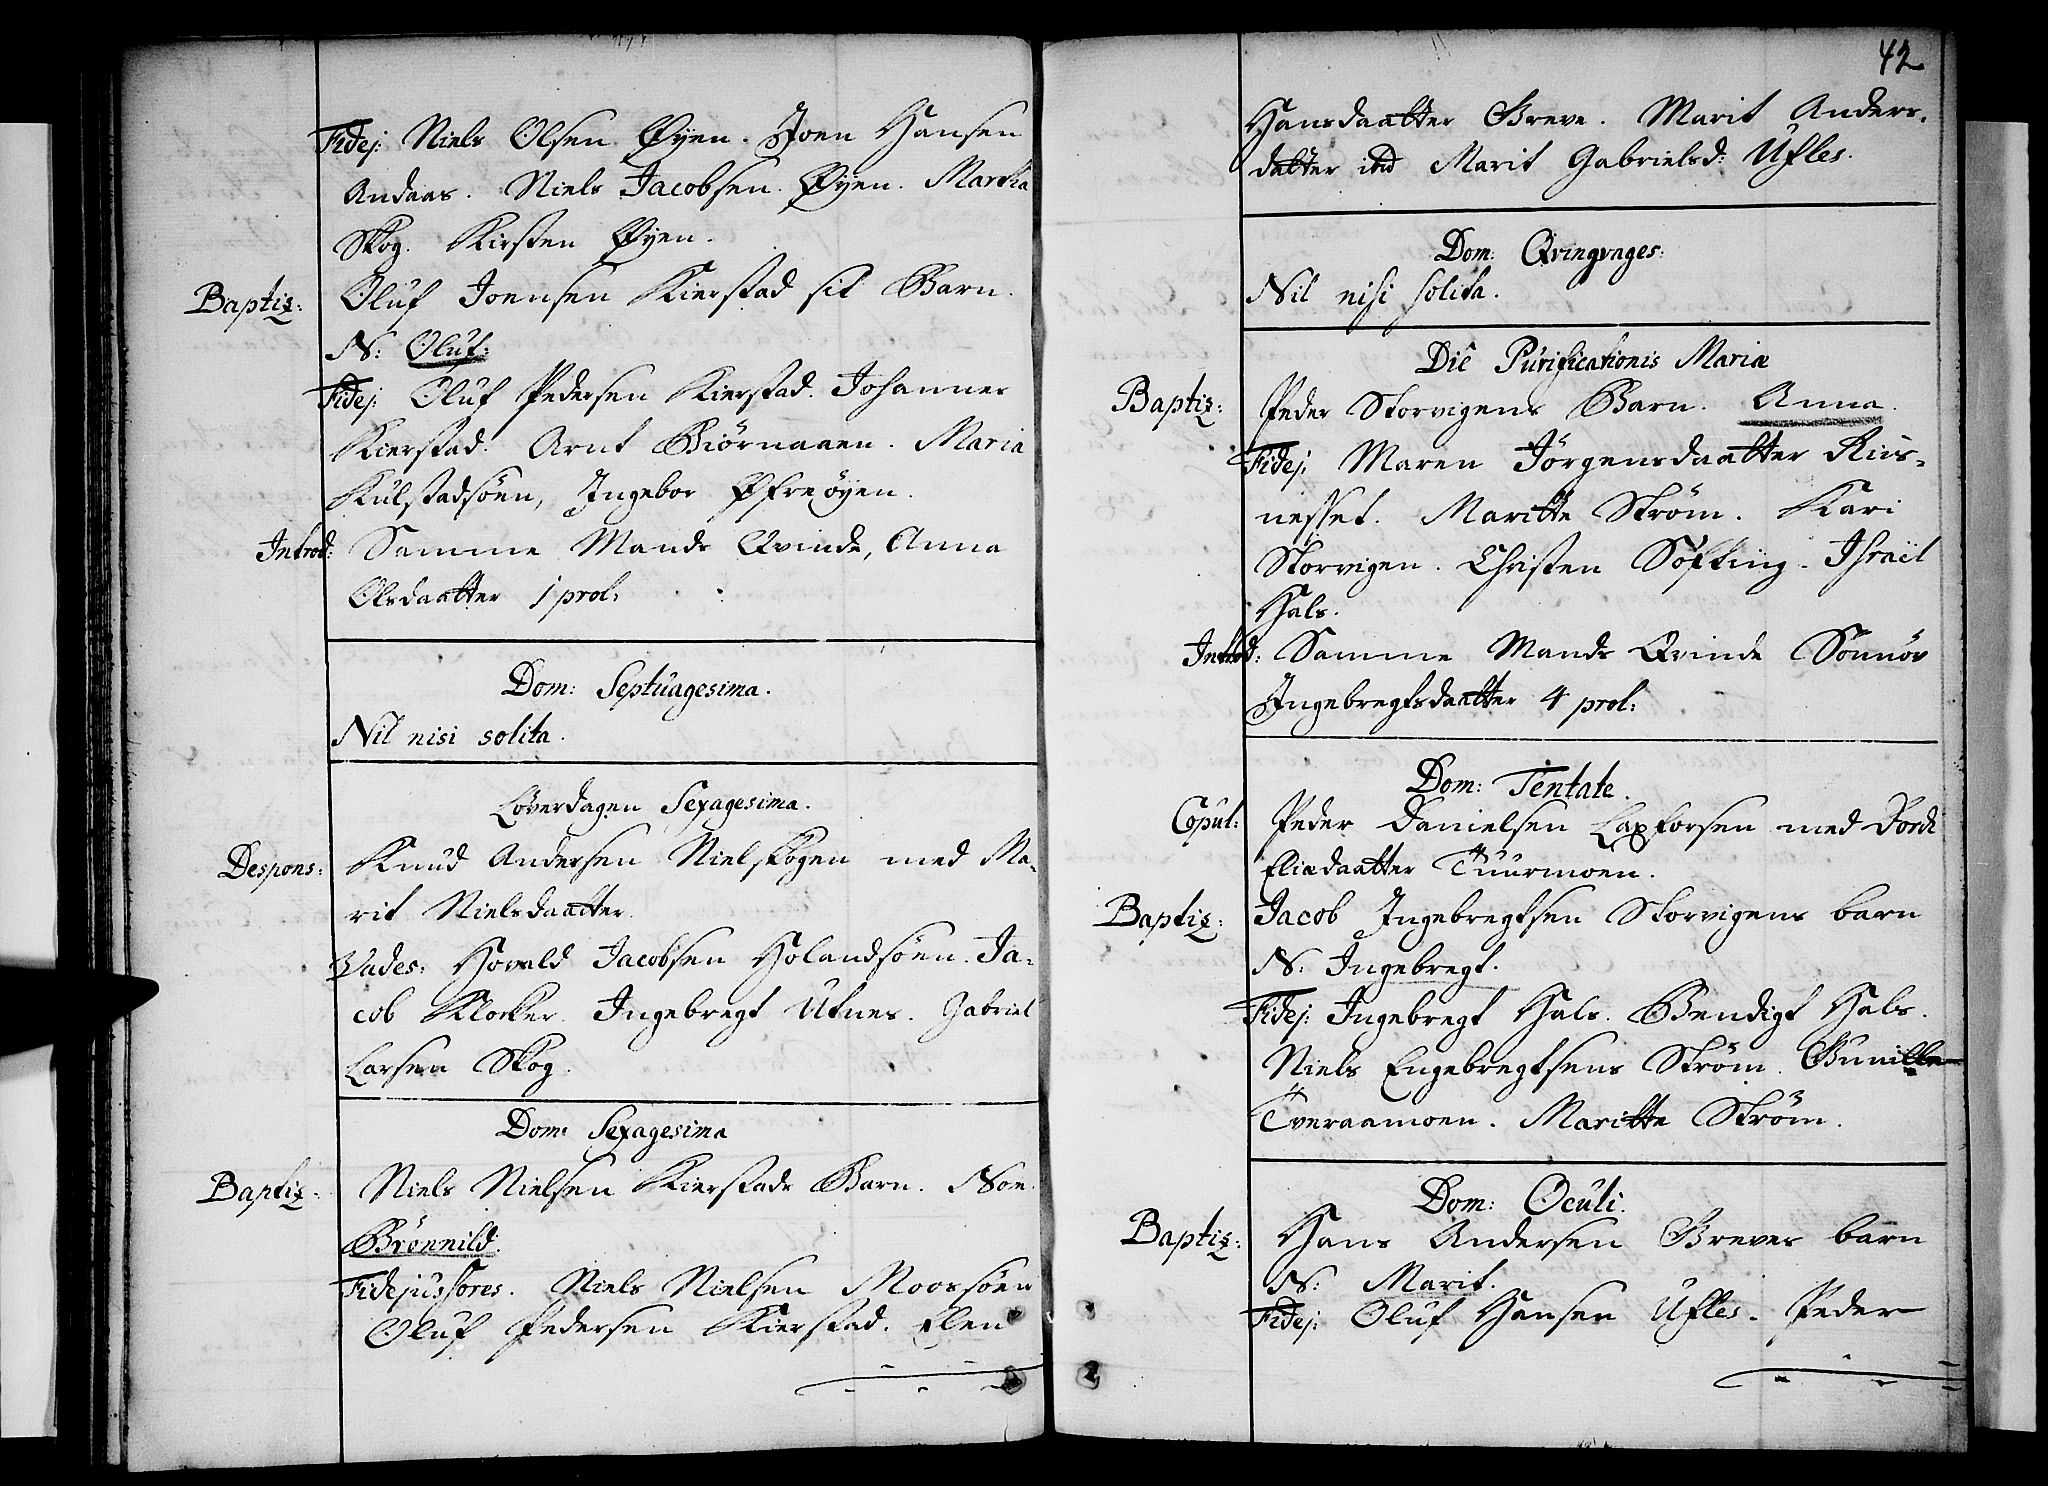 Fidej: Niels Olsen Øyen. Joen Hansen
Andaas. Niels Jacobsen Øyen. Martha
Skog. Kirsten Øyen.
Baptiz: Oluf Joensen Kierstad sit Barn.
N: Oluf:
Fidej: Oluf Pedersen Kierstad. Johannes
Kierstad. Arnt Biørnaaen. Maria
Kulstadsøen, Ingebor Øfreøyen.
Introd: Samme Mands Qvinde, Anna
Olsdaatter 1 prol:
Dom: Septuagesima.
Nil nisi solita.
Løverdagen Sexagesima.
Despons: Knud Andersen Nielskogen med Ma-
rit Nielsdaatter.
Vades: Horvald Jacobsen Holandsøen. Ja-
cob Klocker. Ingebregt Utnes. Gabriel
Larsen Skog.
Dom: Sexagesima
Baptiz: Niels Nielsen Kierstads Barn. Nom.
Brønnild.
Fidejussores. Niels Nielsen Moossøen
Oluf Pedersen Kierstad. Elen
42
Hansdaatter Greve. Marit Anders-
datter Marit Gabrielsd: Ufles.
Dom: Qvinqvages:
Nil nisi solita.
Die Purificationis Mariæ
Baptiz: Peder Storvigens Barn. Anna.
Fidej: Maren Jörgensdaatter Riis-
nesset. Maritte Strøm. Kari
Storvigen. Christen Søfting. Israel
Hals.
Introd: Samme Mands Qvinde Sønnøv
Ingebregtsdaatter 4 prol:
Dom: Tentate.
Copul: Peder Danielsen Laxforsen med Dordi
Eliædaatter Tuurmoen.
Baptiz: Jacob Ingebregtsen Storvigens barn
N: Ingebregt.
Fidej: Ingebregt Hals. Bendigt Hals.
Niels Engebregtsens Strøm. Gunille
Tveraamoen. Maritte Strøm.
Dom: Oculi.
Baptiz: Hans Andersen Greves barn
N: Marit.
Fidej: Oluf Hansen Ufles. Peder